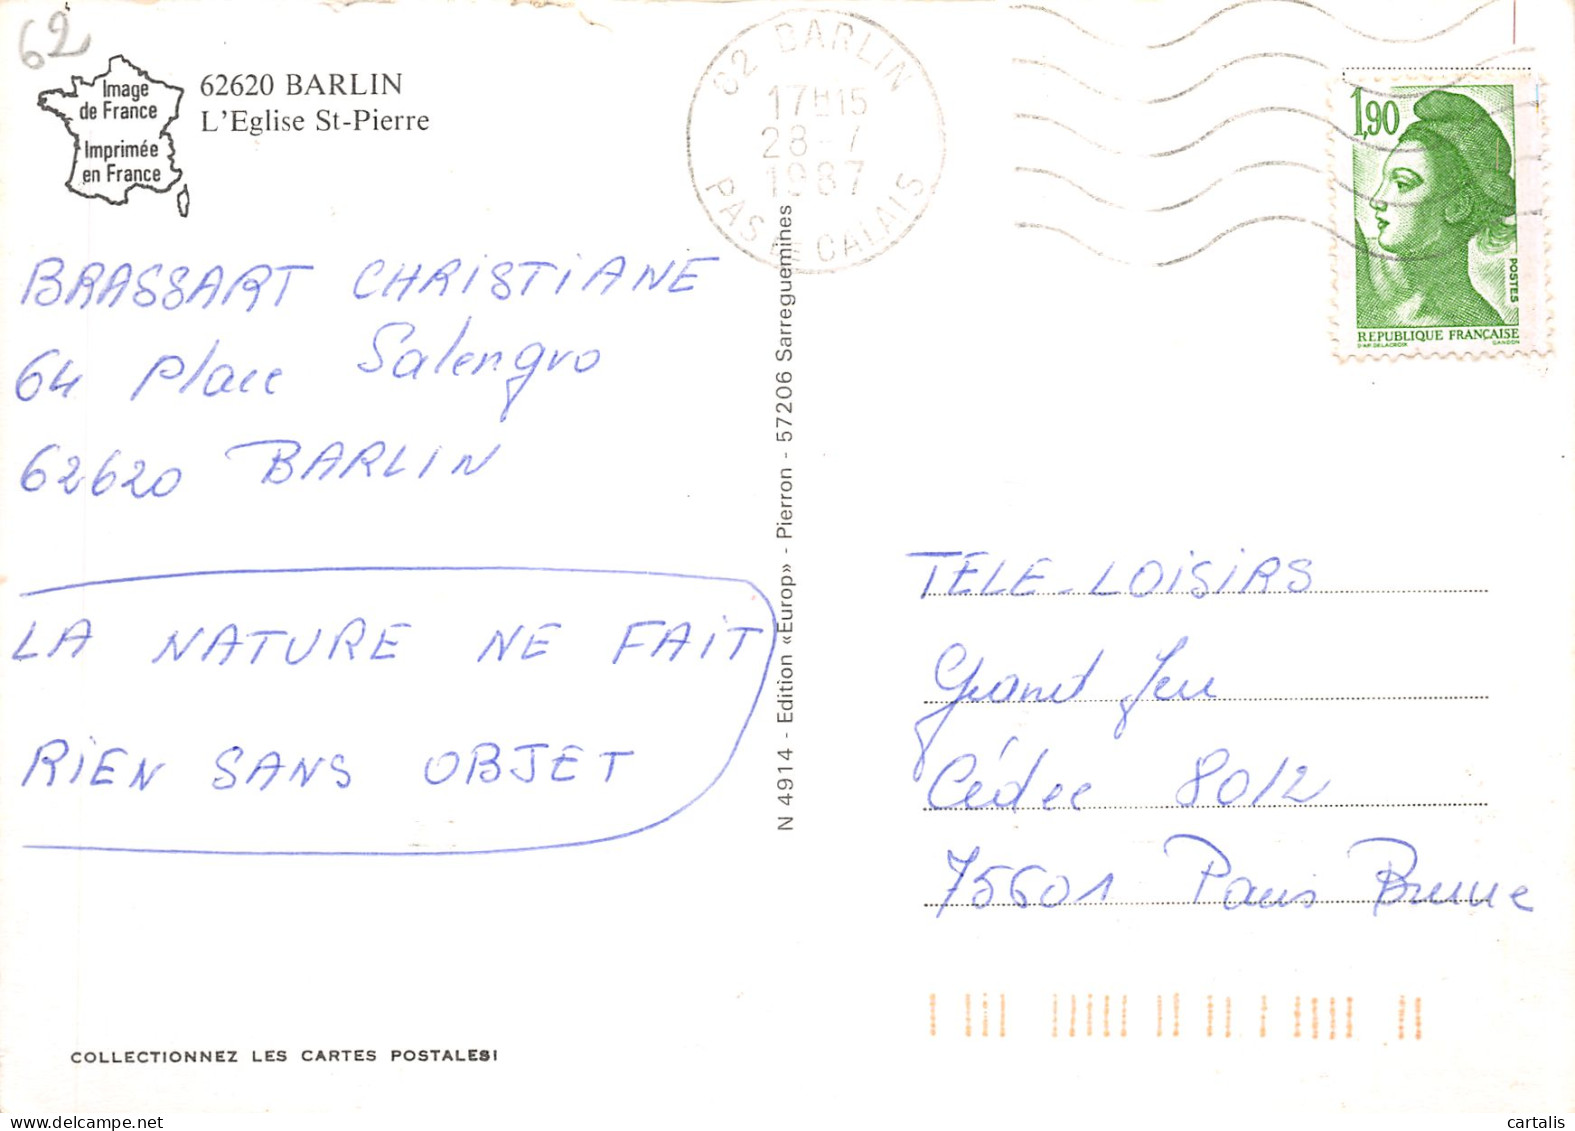 62
Image
de France
Imprimée
en France
62620 BARLIN
L'Eglise St-Pierre
62 BARLIN
17H15
28-7
1987
PAS DE CALAIS
1,90
POSTES
REPUBLIQUE FRANÇAISE
D'AP. DELACROIX GANDON
BRASSART CHRISTIANE
64 Place Salengro
62620 BARLIN
LA NATURE NE FAIT
RIEN SANS OBJET
N 4914 - Edition «Europ» - Pierron - 57206 Sarreguemines
TELE-LOISIRS
Grand Jeu
Cédex 8012
75601 Paris Brune
COLLECTIONNEZ LES CARTES POSTALES!
cartalis